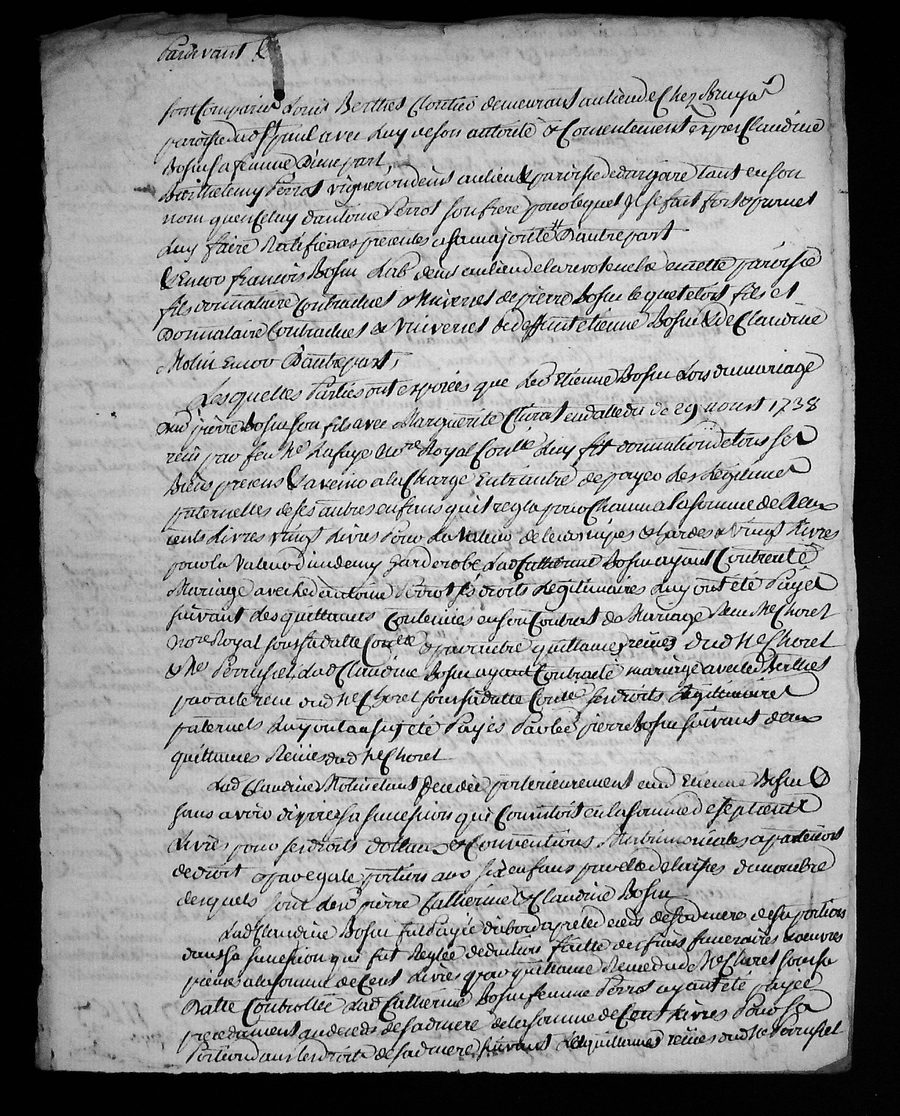 Pardevant &
sont Comparus Louis Berthet Cloutier demeurant au lieu de Chez Bruyas
paroisse de St Paul avec Luy de son autorité & Consentement exprès Claudine
Bossu sa femme D'une part
Barthelemy Perrot vigneron demt au lieu & paroisse de dargoire tant en son
nom qu'en Celuy d'antoine Perrot son frere pour lequel Il se fait fort & promet
Luy faire Ratifier ces presentes a sa majorité D'autre part
Et encor francois Bossu Lab. demt au lieu de la en cette paroisse
fils donnataire Contractuel & Universel de pierre Bossu lequel etoit fils et
Donnataire Contractuel & Universel de deffunt etienne Bossu & de Claudine
Molin Encor D'autre part,
Lesquelles Parties ont exposées que Led Etienne Bossu Lors du mariage
dud pierre Bossu son fils avec Marguerite en datte du 29 aoust 1738
recu par feu Me Lafaye Nore Royal Contlé Luy fit donnation de tous ses
Biens presens & avenir a la Charge Entr'autre de payer Les Legitimes
paternelles de ses autres enfans qu'il regla pour Chacun a la somme de Deux
cents Livres vingt Livres Pour La Valeur de leurs nipes & hardes & vingt Livres
pour la Valeur d'un demy Garderobe, Lad Catherine Bossu ayant Contracté
Mariage avec led antoine Perrot ses droits Legitimaires Luy ont été Payés
suivant Les quittances Contenües en son Contrat de Mariage Recu Me Choret
Nore Royal sous sa datte Contlé & par autre quittance reçües dud Me Choret
& Me Perrussel, Lad Claudine Bossu ayant Contracté mariage avec led Berthet
par acte recu dud Me Choret sous sa datte Contlé ses droits Légitimaires
paternels Luy ont aussy été Payés Par led pierre Bossu suivant deux
quittances Reçües dud Me Choret
Lad Claudine Molin etant decedée posterieurement aud Etienne Bossu &
sans avoir disposé sa succession qui Consistoit en la somme de sept cent
Livres pour ses droits dottaux & Conventions Matrimoniales apartenoit
de droit & par egale portion aux six enfans par elle delaissés du nombre
desquels sont Lesd pierre Catherine & Claudine Bossu
Lad Claudine Bossu fut Payée d'abord apres le deces de sa mere de sa portion
dans sa succession qui fut Reglée deduction faitte des frais funeraires & oeuvres
pieuses a la somme de Cent Livres par quittance Recue dud Me Choret sous sa
Datte Controllée Lad Catherine Bossu femme Perrot ayant été payée
precedament au deces de sa mere de la somme de Cent Livres Pour sa
Portion dans les droits de sa mere suivant Les quittances reçües dud Me Perrussel